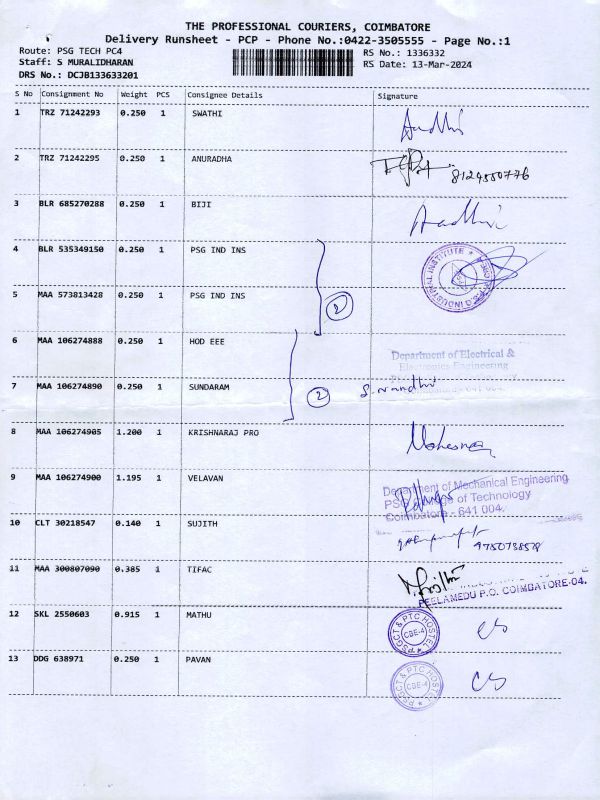 THE PROFESSIONAL COURIERS, COIMBATORE
Delivery Runsheet - PCP - Phone No.:0422-3505555 - Page No.:1
Route: PSG TECH PC4
RS No.: 1336332
Staff: S MURALIDHARAN
RS Date: 13-Mar-2024
DRS No.: DCJB133633201
S No Consignment No Weight PCS Consignee Details Signature
1 TRZ 71242293 0.250 1 SWATHI
2 TRZ 71242295 0.250 1 ANURADHA
3 BLR 685270288 0.250 1 BIJI
4 BLR 535349150 0.250 1 PSG IND INS
5 MAA 573813428 0.250 1 PSG IND INS
2
6 MAA 106274888 0.250 1 HOD EEE
Department of Electrical &
Electronics Engineering
7 MAA 106274890 0.250 1 SUNDARAM
2
8 MAA 106274905 1.200 1 KRISHNARAJ PRO
9 MAA 106274900 1.195 1 VELAVAN
Department of Mechanical Engineering
PSG College of Technology
Coimbatore - 641 004.
10 CLT 30218547 0.140 1 SUJITH
11 MAA 300807090 0.385 1 TIFAC
PEELAMEDU P.O. COIMBATORE-04.
12 SKL 2550603 0.915 1 MATHU
PSGCT & PTC HOSTEL
CBE-4
13 DDG 638971 0.250 1 PAVAN
PSGCT & PTC HOSTEL
CBE-4